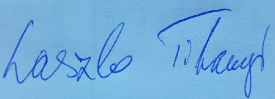 Laszlo Tihanyi